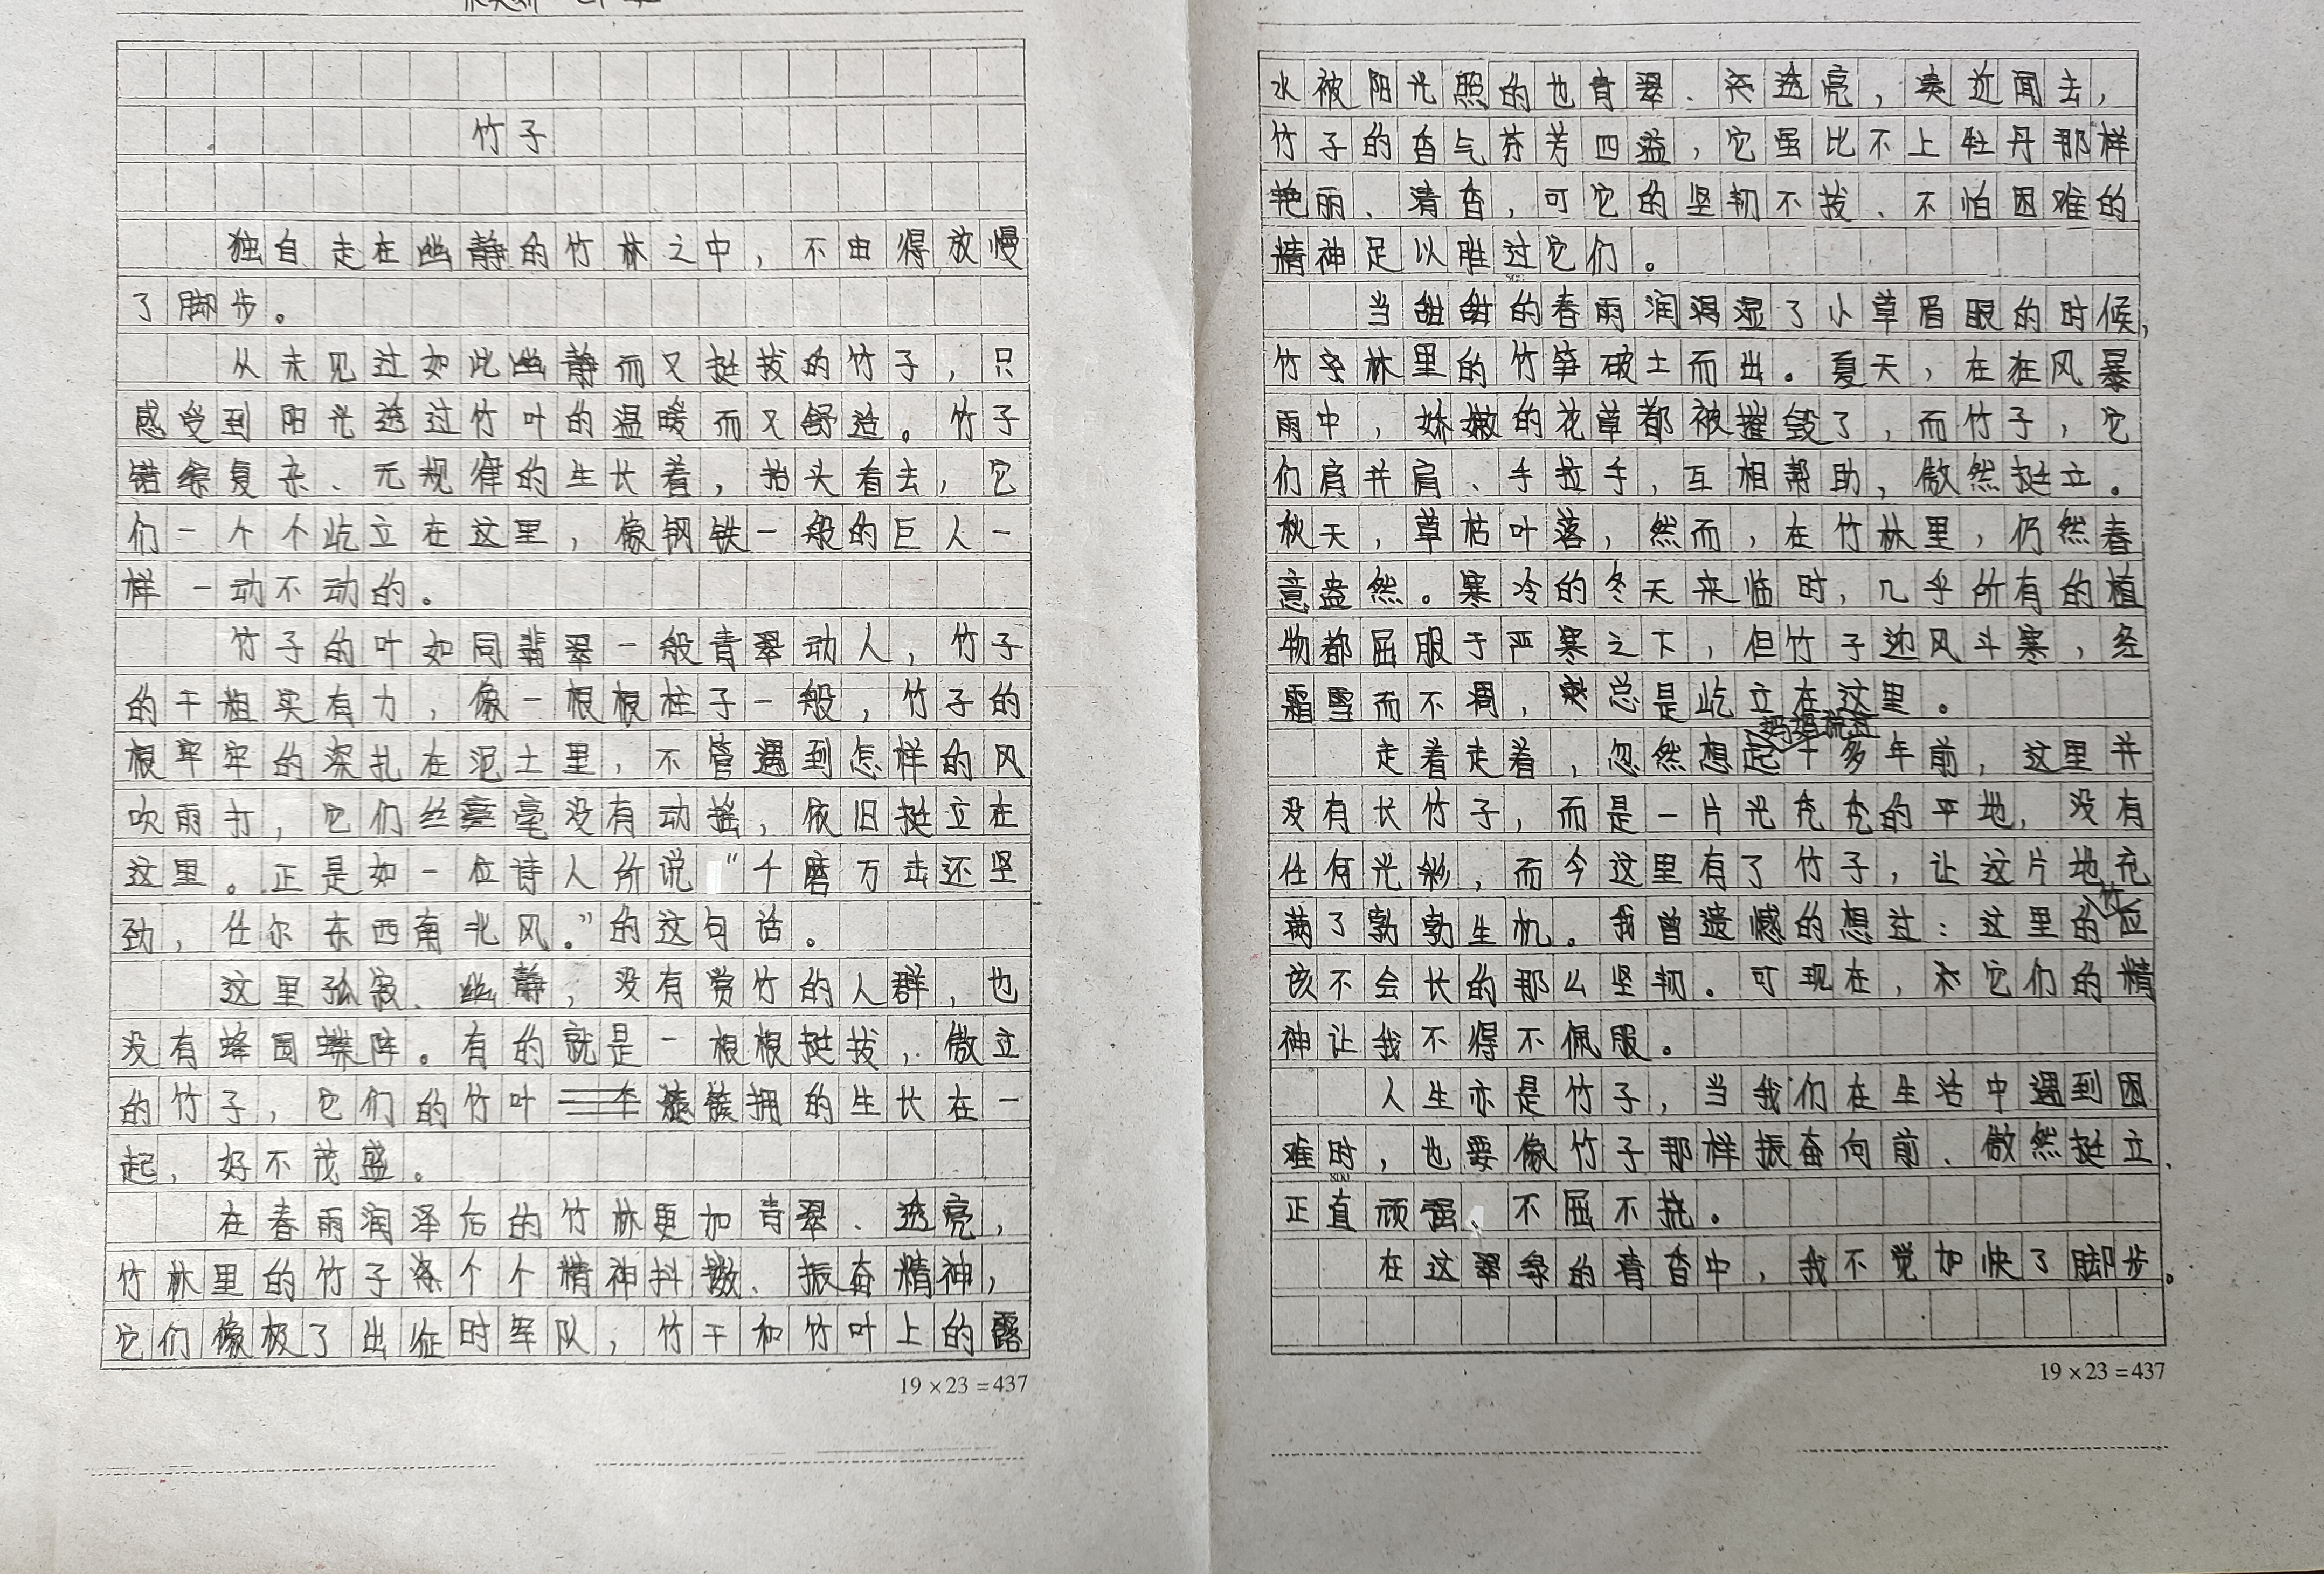 竹子
独自走在幽静的竹林之中，不由得放慢
了脚步。
从未见过如此幽静而又挺拔的竹子，只
感受到阳光透过竹叶的温暖而又舒适。竹子
错综复杂、无规律的生长着，抬头看去，它
们一个个屹立在这里，像钢铁一般的巨人一
样一动不动的。
竹子的叶如同翡翠一般青翠动人，竹子
的干粗实有力，像一根根柱子一般，竹子的
根牢牢的深扎在泥土里，不管遇到怎样的风
吹雨打，它们丝毫没有动摇，依旧挺立在
这里。正是如一位诗人所说“千磨万击还坚
劲，任尔东西南北风。”的这句话。
这里孤寂、幽静，没有赏竹的人群，也
没有蜂围蝶阵。有的就是一根根挺拔，傲立
的竹子，它们的竹叶簇拥的生长在一
起，好不茂盛。
在春雨润泽后的竹林更加青翠、透亮，
竹林里的竹子个个精神抖擞、振奋精神，
它们像极了出征时军队，竹干和竹叶上的露
水被阳光照的也青翠、透亮，凑近闻去，
竹子的香气芬芳四溢，它虽比不上牡丹那样
艳丽、清香，可它的坚韧不拔、不怕困难的
精神足以胜过它们。
当甜甜的春雨润湿了小草眉眼的时候，
竹林里的竹笋破土而出。夏天，在狂风暴
雨中，娇嫩的花草都被摧毁了，而竹子，它
们肩并肩、手拉手，互相帮助，傲然挺立。
秋天，草枯叶落，然而，在竹林里，仍然春
意盎然。寒冷的冬天来临时，几乎所有的植
物都屈服于严寒之下，但竹子迎风斗寒，经
霜雪而不凋，总是屹立在这里。
走着走着，忽然想起妈妈说过十多年前，这里并
没有长竹子，而是一片光秃秃的平地，没有
任何光彩，而今这里有了竹子，让这片地充
满了勃勃生机。我曾遗憾的想过：这里的竹应
该不会长的那么坚韧。可现在，它们的精
神让我不得不佩服。
人生亦是竹子，当我们在生活中遇到困
难时，也要像竹子那样振奋向前、傲然挺立、
正直顽强、不屈不挠。
在这翠绿的清香中，我不觉加快了脚步。
19×23=437
19×23=437